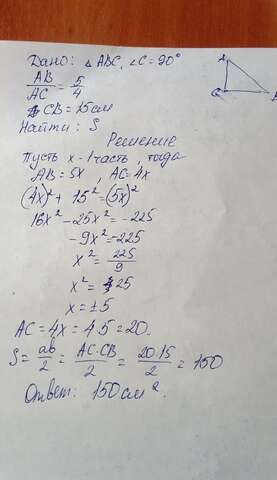 Дано: △ABC, ∠C=90°
AB/AC = 5/4
CB=15см
Найти: S
Решение
Пусть x-1часть, тогда
AB=5x, AC=4x
(4x)²+15²=(5x)²
16x²-25x²=-225
-9x²=-225
x²=225/9
x²=25
x=±5
AC=4x=4·5=20.
S=ab/2=AC·CB/2=20·15/2=150
Ответ: 150см².
A
C